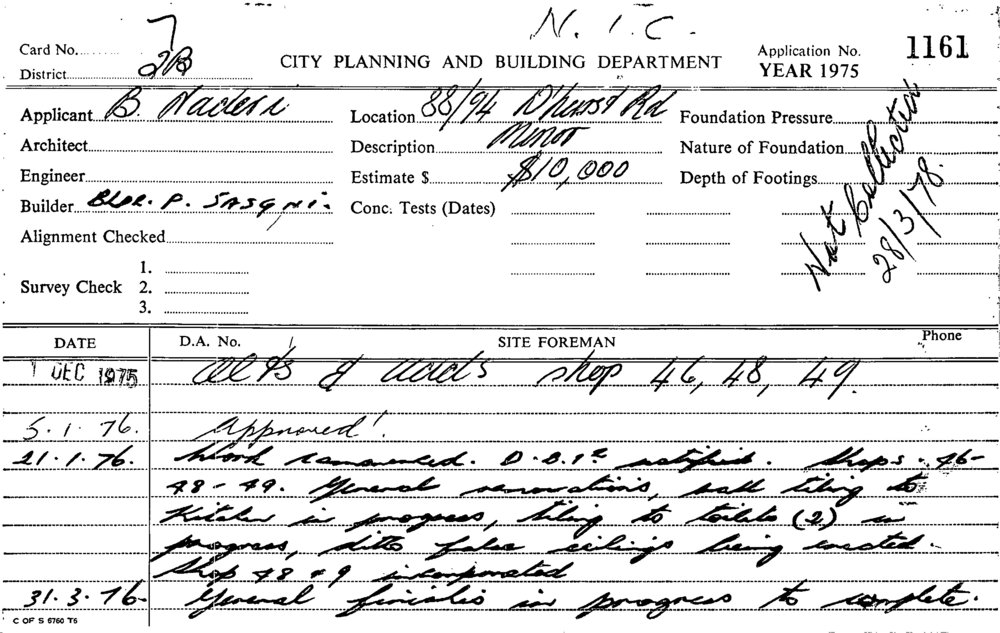 N. I. C.
Card No. 7
District 2B
CITY PLANNING AND BUILDING DEPARTMENT
Application No. 1161
YEAR 1975
Applicant B. Naderi
Location 88/94 D'hurst Rd
Foundation Pressure
Architect
Description Minor
Nature of Foundation
Engineer
Estimate $ $10,000
Depth of Footings
Builder Bldr. P. 
Conc. Tests (Dates)
Not Collected
28/3/78.
Alignment Checked
Survey Check
1.
2.
3.
DATE D.A. No. SITE FOREMAN Phone
1 DEC 1975 Alts & adds shop 46, 48, 49.
5.1.76. Approved!
21.1.76. Work commenced. D.B.I. notified. Shops 46-
48-49. General renovations, wall tiling to
Kitchen in progress, tiling to toilets (2) in
progress, ditto false ceilings being erected.
Shop 48 49 incorporated
31.3.76- General finishes in progress to complete.
C OF S 6760 T6